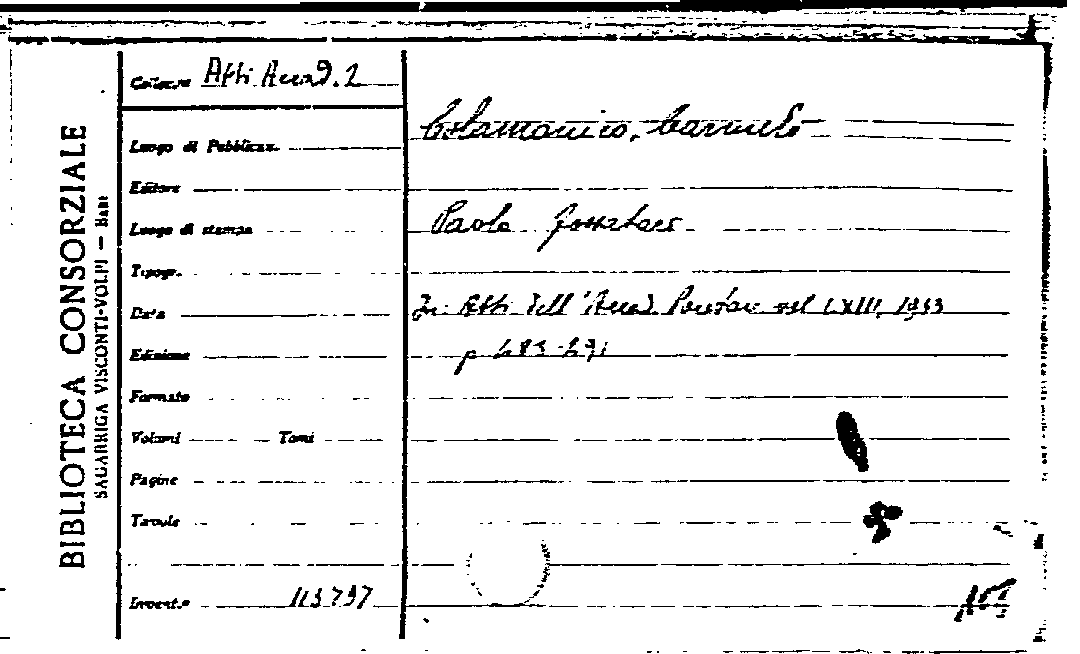 BIBLIOTECA CONSORZIALE
SAGARRIGA VISCONTI-VOLPI — BARI
Collocaz. Atti Accad. 2
Luogo di Pubblicaz.
Editore
Luogo di stampa
Tipogr.
Data
Edizione
Formato
Volumi Tomi
Pagine
Tavole
Invent.o 113797
Colamonico, Carmelo
Paolo
In: Atti dell'Accad. Pontan. vol LXIII, 1933
p 283-291